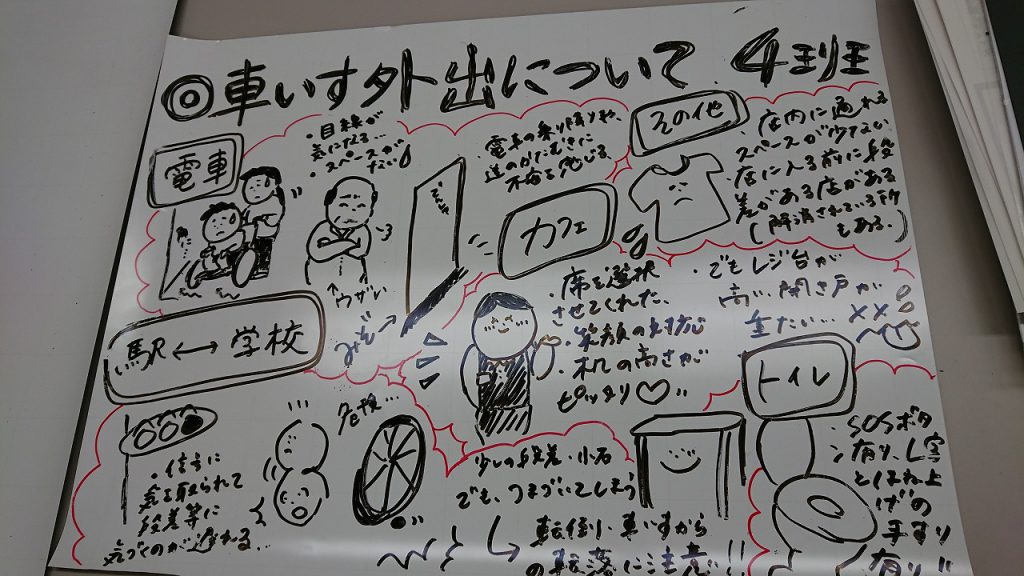 ◎車いす外出について 4班
電車
・目線が
気になる…
・スペースが
ない
電車の乗り降りや、
道のかたむきに
不安を感じる
↑ウザい
その他
店内に通れる
スペースが少ない
店に入る前に段
差がある店がある
(解消されている所
もある。)
カフェ
・席を選択
させてくれた。
・笑顔の対応
・机の高さが
ピッタリ♡
・でもレジ台が
高い、開き戸が
重たい…××
駅↔学校
・信号に
気を取られて
段差等に
気づくのが遅れる…
危険…
少しの段差・小石
でも、つまづいてしまう
↳転倒り、車いすから
の転落に注意!!
トイレ
・SOSボタ
ン有り、L字
とはね上
げの
手すり
有り!!